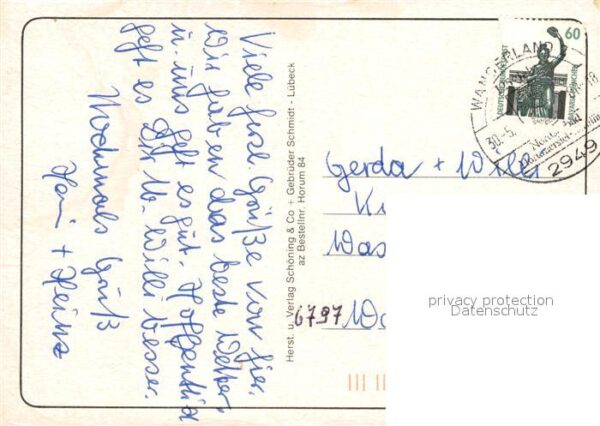 Viele herzl. Grüße von hier.
Wir haben das beste Wetter
u. uns geht es gut. Hoffentlich
geht es Dir lb. Willi besser.
Nochmals Grüß
+ Heinz
Herst. u. Verlag Schöning & Co + Gebrüder Schmidt - Lübeck
az Bestellnr. Horum 84
60
DEUTSCHE BUNDESPOST
BAVARIA MÜNCHEN
WANGERLAND
30.-5.
2949
Gerda + Willi
Was
6797
privacy protection
Datenschutz